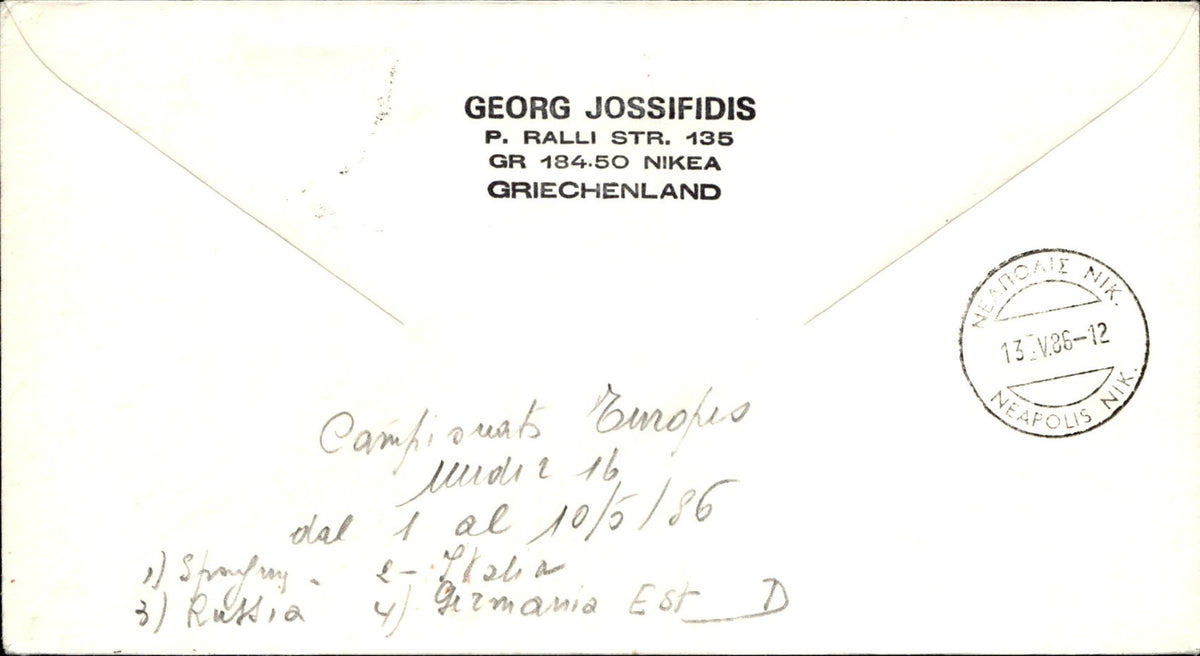 GEORG JOSSIFIDIS
P. RALLI STR. 135
GR 184.50 NIKEA
GRIECHENLAND
ΝΕΑΠΟΛΙΣ ΝΙΚ.
13 V.86-12
NEAPOLIS NIK.
Campionato Europeo
under 16
dal 1 al 10/5/86
1) Spagna - 2- Italia
3) Russia 4) Germania Est D